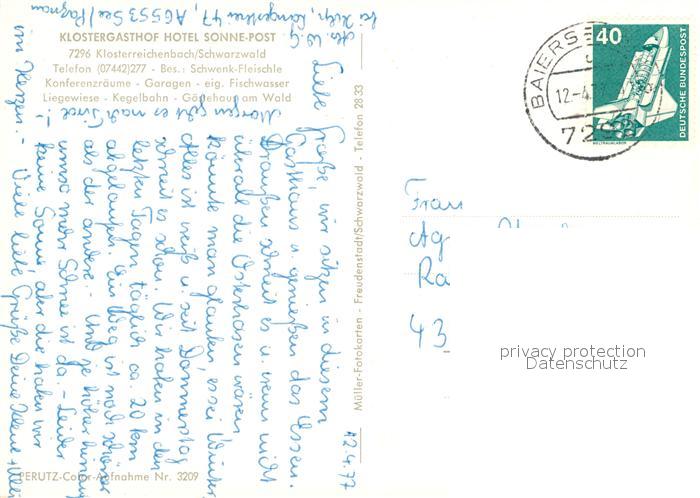 KLOSTERGASTHOF HOTEL SONNE-POST
7296 Klosterreichenbach/Schwarzwald
Telefon (07442)277 - Bes.: Schwenk-Fleischle
Konferenzräume - Garagen - eig. Fischwasser
Liegewiese - Kegelbahn - Gästehaus am Wald
12.4.77
Liebe
Grüße, wir sitzen in diesem
Gasthaus u. genießen das Essen.
Draußen schneit es u. wenn nicht
überall die Osterhasen wären
könnte man glauben, es sei Winter
Alles ist weiß u. seit Donnerstag
schneit es schon. Wir haben in den
letzten Tagen täglich ca. 20 km
abgelaufen. Ein Weg ist noch schöner
als der andere. - Und je höher hinauf
umso mehr Schnee ist da. - Leider
keine Sonne, aber die haben wir
im Herzen. - Viele liebe Grüße Deine
Morgen geht es nach
PERUTZ-Color-Aufnahme Nr. 3209
Müller-Fotokarten - Freudenstadt/Schwarzwald - Telefon 28 33
BAIERS
12.-4.
729
40
DEUTSCHE BUNDESPOST
WELTRAUMLABOR
Frau
Ag
Ra
43
privacy protection
Datenschutz